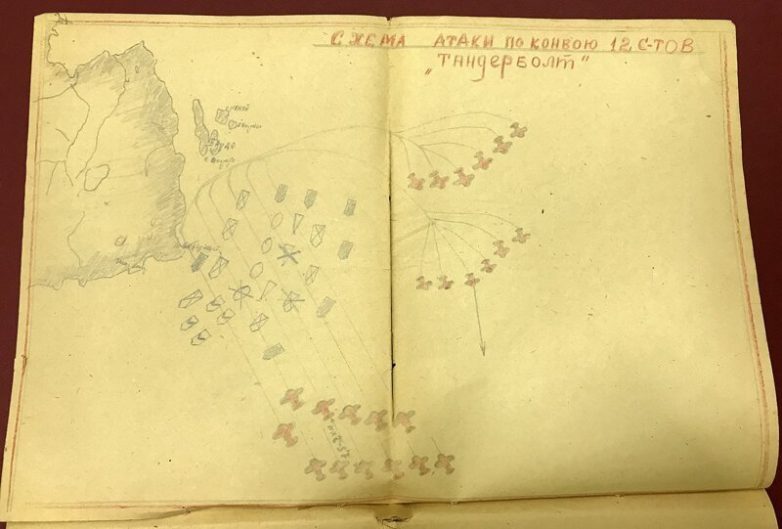 СХЕМА АТАКИ ПО КОНВОЮ 12 С-ТОВ
„ТАНДЕРБОЛТ"